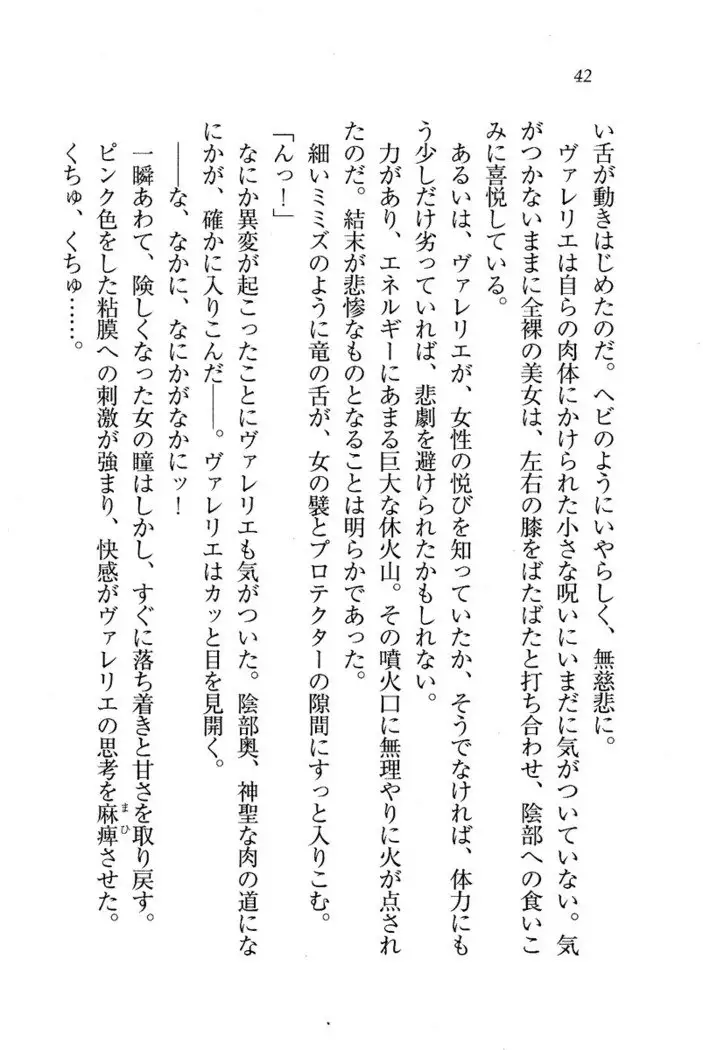 42
い舌が動きはじめたのだ。ヘビのようにいやらしく、無慈悲に。
　ヴァレリエは自らの肉体にかけられた小さな呪いにいまだに気がついていない。気
がつかないままに全裸の美女は、左右の膝をばたばたと打ち合わせ、陰部への食いこ
みに喜悦している。
　あるいは、ヴァレリエが、女性の悦びを知っていたか、そうでなければ、体力にも
う少しだけ劣っていれば、悲劇を避けられたかもしれない。
　力があり、エネルギーにあまる巨大な休火山。その噴火口に無理やりに火が点され
たのだ。結末が悲惨なものとなることは明らかであった。
　細いミミズのように竜の舌が、女の襞とプロテクターの隙間にすっと入りこむ。
「んっ！」
　なにか異変が起こったことにヴァレリエも気がついた。陰部奥、神聖な肉の道にな
にかが、確かに入りこんだ――。ヴァレリエはカッと目を見開く。
　――な、なかに、なにかがなかにッ！
　一瞬あわて、険しくなった女の瞳はしかし、すぐに落ち着きと甘さを取り戻す。
　ピンク色をした粘膜への刺激が強まり、快感がヴァレリエの思考を麻痺させた。
まひ
　くちゅ、くちゅ……。